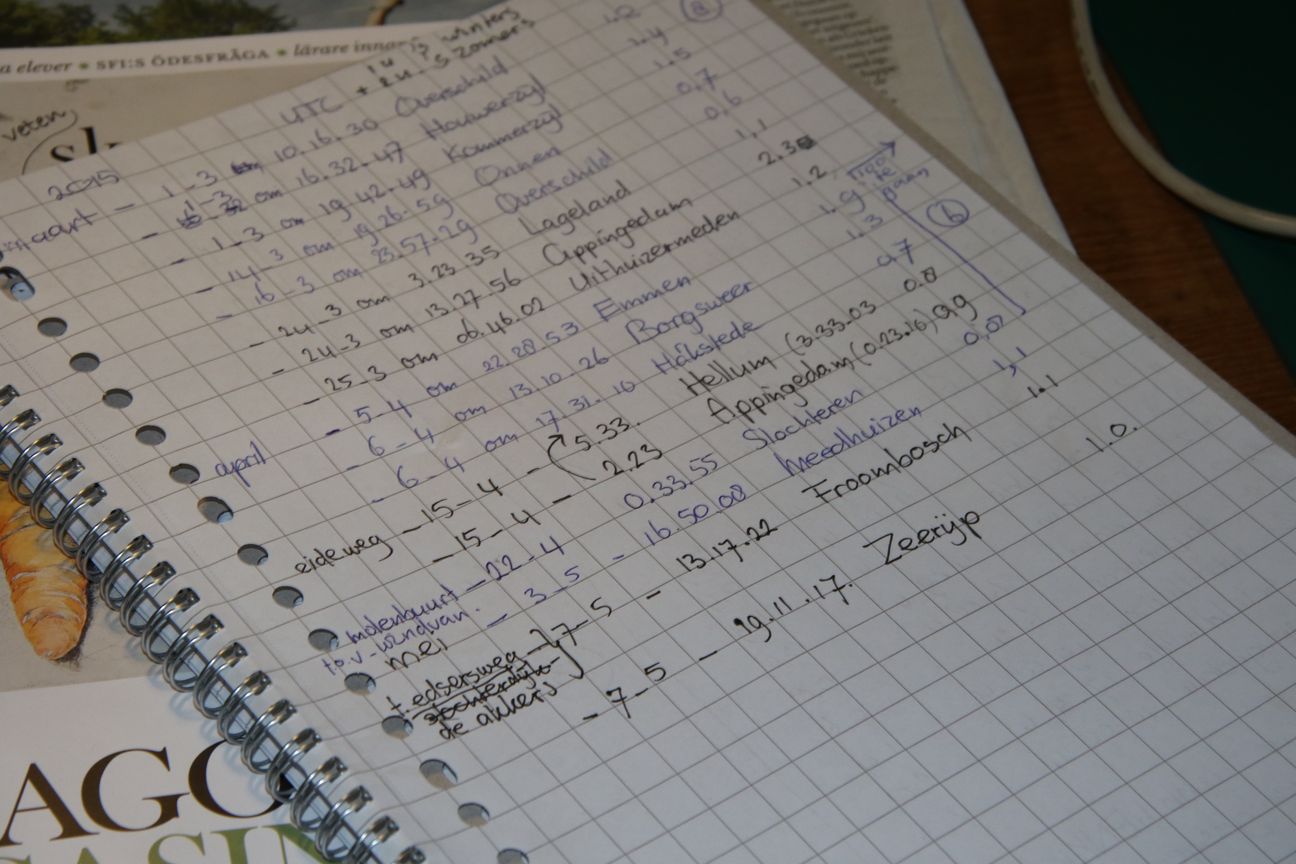 a elever * SFI:S ÖDESFRÅGA * lärare inna
veten
2015 UTC + 1u 's winters
+ 2u 's zomers
maart - 1-3 om 10.16.30 Overschild 1.0 (a)
- 1-3 om 16.32.47 Houwerzyl 2.4
- 1-3 om 19.42.49 Kommerzyl 1.5
- 14-3 om 19.26.59 Onnen 0.7
- 16-3 om 23.57.29 Overschild 0.6
- 24-3 om 3.23.35 Lageland 1.1
- 24-3 om 13.27.56 Appingedam 2.3
- 25-3 om 06.46.02 Uithuizermeden 1.2
april - 5-4 om 22.28.53 Emmen 1.9
- 6-4 om 13.10.26 Borgsweer 1.3 (b)
- 6-4 om 17.31.16 Hakstede 0.7
eideweg - 15-4 - 5.33. Hellum (3.33.03 0.8
- 15-4 - 2.23 Appingedam (0.23.16) 0.9
molenbuurt - 22-4 0.33.55 Slochteren 0.07
t.o.v. windvan.
mei - 3-5 - 16.50.08 Meedhuizen 1,1
t. edsersweg - 7-5 - 13.17.22 Froombosch 1.1
de akkers
- 7-5 - 19.11.17. Zeerijp 1.0.
AGO